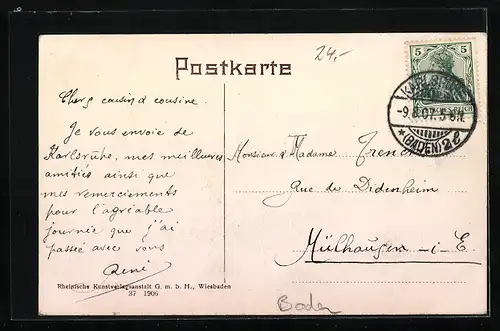 24.-
Postkarte
5 5
REICH
KARLSRUHE
-9.8.07.5-6N.
*(BADEN)2
Chers cousin & cousine
Je vous envoie de
Karlsruhe, mes meilleures
amitiés ainsi que
mes remerciements
pour l'agréable
journée que j'ai
passée avec vous
René
Monsieur & Madame
Rue de Didenheim
Mülhausen - i - E.
Rheinische Kunstverlagsanstalt G. m. b. H., Wiesbaden
37 1906
Baden